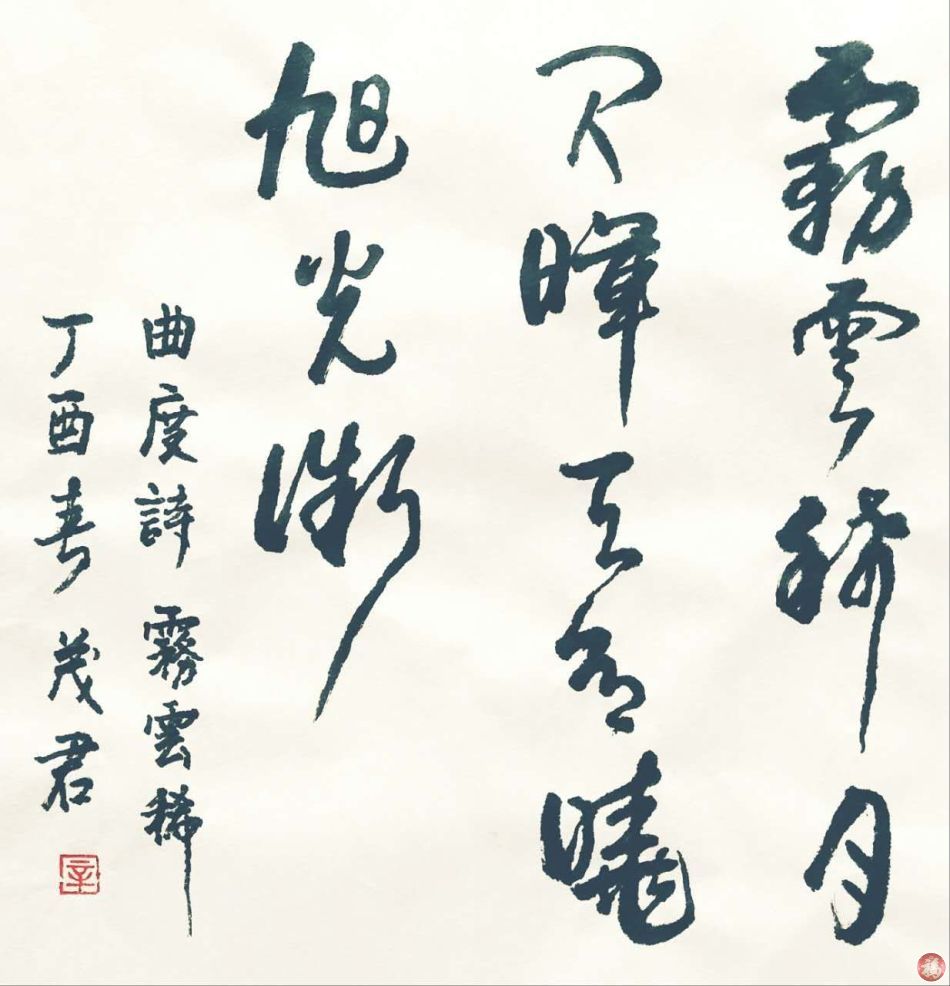 霧雲稀月
閃暉天色曉
旭光微
曲度詩 霧雲稀
丁酉春 茂君